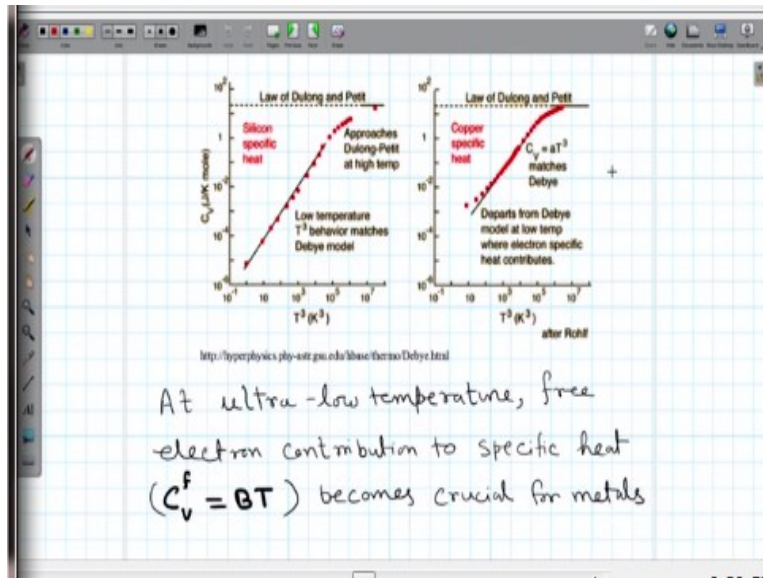 Law of Dulong and Petit
Silicon
specific
heat
Approaches
Dulong-Petit
at high temp
Low temperature
T³ behavior matches
Debye model
C_V (J/K mole)
10² 1 10⁻² 10⁻⁴ 10⁻⁶
10⁻¹ 10 10³ 10⁵ 10⁷
T³ (K³)
Law of Dulong and Petit
Copper
specific
heat
C_V = aT³
matches
Debye
Departs from Debye
model at low temp
where electron specific
heat contributes.
10² 1 10⁻² 10⁻⁴ 10⁻⁶
10⁻¹ 10 10³ 10⁵ 10⁷
T³ (K³)
after Rohlf
http://hyperphysics.phy-astr.gsu.edu/hbase/thermo/Debye.html
At ultra-low temperature, free
electron contribution to specific heat
(C_v^f = BT) becomes crucial for metals